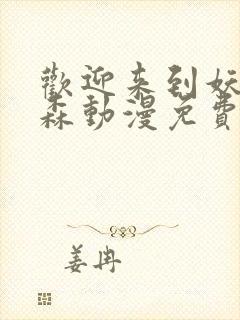 歡迎来到妖
森動漫免費
姜冉